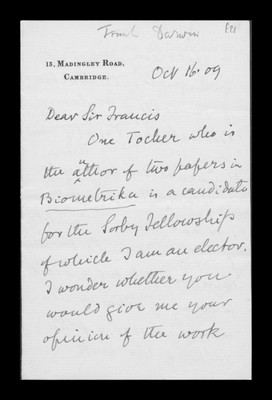 Frank Darwin
13, MADINGLEY ROAD,
CAMBRIDGE.
Oct 16. 09
Dear Sir Francis
One Tocher who is
the author of two papers in
Biometrika is a candidate
for the Sorby Fellowship
of which I am an elector.
I wonder whether you
would give me your
opinion of the work